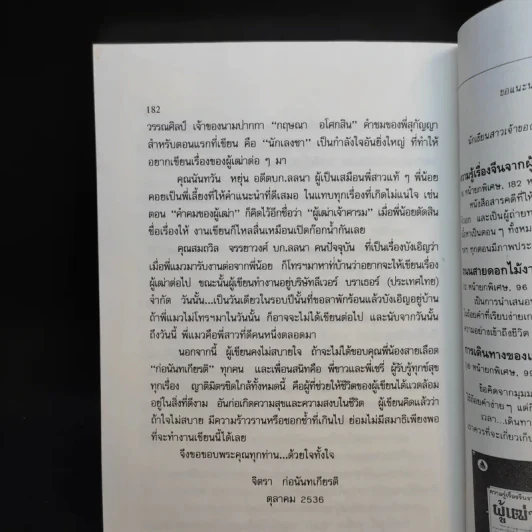 182
วรรณศิลป์ เจ้าของนามปากกา “กฤษณา อโศกสิน” คำชมของพี่สุกัญญา
สำหรับตอนแรกที่เขียน คือ “นักเลงชา” เป็นกำลังใจอันยิ่งใหญ่ ที่ทำให้
อยากเขียนเรื่องของผู้เฒ่าต่อ ๆ มา
คุณนันทวัน หยุ่น อดีตบก.ลลนา ผู้เป็นเสมือนพี่สาวแท้ ๆ พี่น้อย
คอยเป็นพี่เลี้ยงที่ให้คำแนะนำที่ดีเสมอ ในแทบทุกเรื่องที่เกิดไม่แน่ใจ เช่น
ตอน “คำคมของผู้เฒ่า” ก็คิดไว้อีกชื่อว่า “ผู้เฒ่าเจ้าคารม” เมื่อพี่น้อยตัดสิน
ชื่อเรื่องให้ งานเขียนก็ไหลลื่นเหมือนเปิดก๊อกน้ำกันเลย
คุณสมถวิล จรรยาวงค์ บก.ลลนา คนปัจจุบัน ที่เป็นเรื่องบังเอิญว่า
เมื่อพี่แมวมารับงานต่อจากพี่น้อย ก็โทรฯมาหาที่บ้านว่าอยากจะให้เขียนเรื่อง
ผู้เฒ่าต่อไป ขณะนั้นผู้เขียนทำงานอยู่บริษัทลีเวอร์ บราเธอร์ (ประเทศไทย)
จำกัด วันนั้น...เป็นวันเดียวในรอบปีนั้นที่ขอลาพักร้อนแล้วบังเอิญอยู่บ้าน
ถ้าพี่แมวไม่โทรฯมาในวันนั้น ก็อาจจะไม่ได้เขียนต่อไป และนับจากวันนั้น
ถึงวันนี้ พี่แมวคือพี่สาวที่ดีคนหนึ่งตลอดมา
นอกจากนี้ ผู้เขียนคงไม่สบายใจ ถ้าจะไม่ได้ขอบคุณพี่น้องสายเลือด
“ก่อนันทเกียรติ” ทุกคน และเพื่อนสนิทคือ พี่ขาวและพี่เชรี่ ผู้รับรู้ทุกข์สุข
ทุกเรื่อง ญาติมิตรชิดใกล้ทั้งหมดนี้ คือผู้ที่ช่วยให้ชีวิตของผู้เขียนได้แวดล้อม
อยู่ในสิ่งที่ดีงาม อันก่อเกิดความสุขและความสงบในชีวิต ผู้เขียนคิดแล้วว่า
ถ้าใจไม่สบาย มีความร้าวรานหรือชอกช้ำที่เกินไป ย่อมไม่มีสมาธิเพียงพอ
ที่จะทำงานเขียนนี้ได้เลย
จึงขอขอบพระคุณทุกท่าน...ด้วยใจทั้งใจ
จิตรา ก่อนันทเกียรติ
ตุลาคม 2536
ขอแนะน
นักเขียนสาวเจ้าของ
ความรู้เรื่องจีนจากผู้
หน้ายกพิเศษ. 182 ห
หนังสือสารคดีที่ให้
และเป็นผู้ถ่ายท
เป็นตอนๆ ทั้งหม
ทุกตอนมีภาพประ
ถนนสายดอกไม้งา
หน้ายกพิเศษ. 96
เป็นการนำเสนอ
อย่างเข้าถึงชีวิต
การเดินทางของเ
หน้ายกพิเศษ. 9
ข้อคิดจากมุมม
เวลา...เดินทา
ผู้เฒ่า